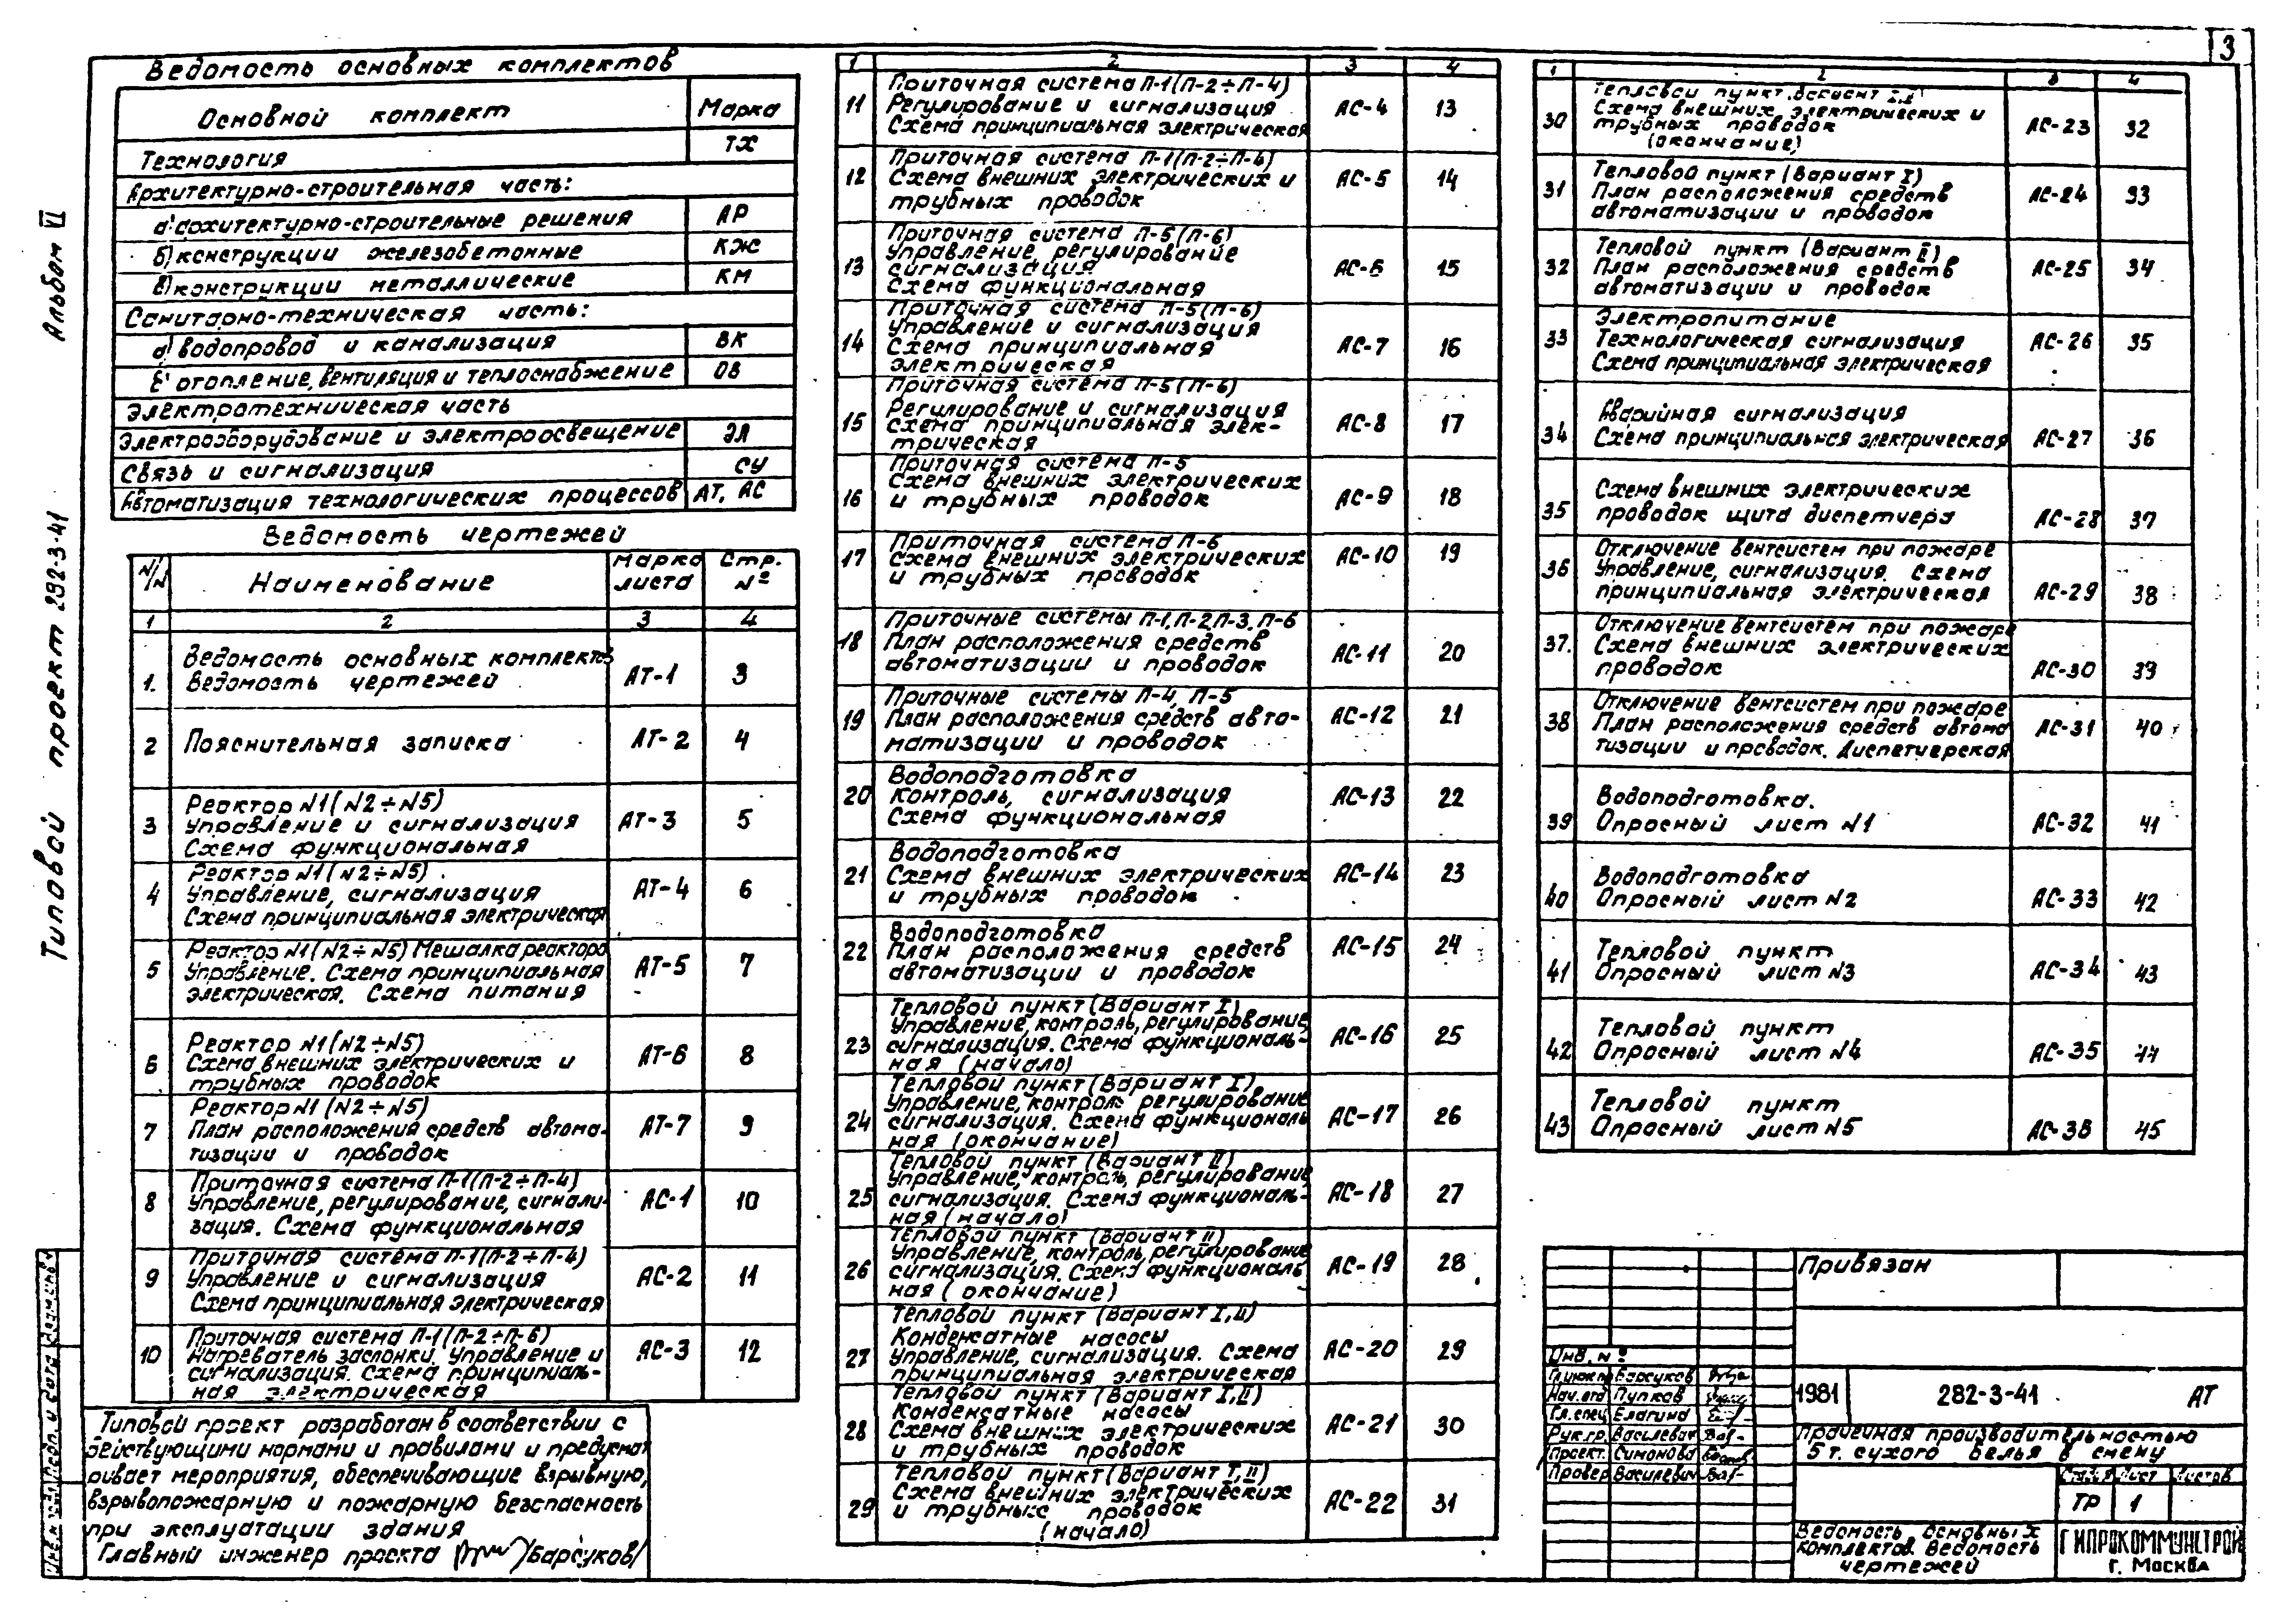 3
Альбом VI
Типовой проект 282-3-41
Ведомость основных комплектов
Основной комплект Марка
Технология ТХ
Архитектурно-строительная часть:
а) архитектурно-строительные решения АР
б) конструкции железобетонные КЖ
в) конструкции металлические КМ
Санитарно-техническая часть:
а) водопровод и канализация ВК
б) отопление, вентиляция и теплоснабжение ОВ
Электротехническая часть
Электрооборудование и электроосвещение ЭЛ
Связь и сигнализация СУ
Автоматизация технологических процессов АТ, АС
Ведомость чертежей
N/N Наименование Марка листа Стр. №
1 2 3 4
1. Ведомость основных комплектов
Ведомость чертежей АТ-1 3
2 Пояснительная записка АТ-2 4
3 Реактор N1 (N2÷N5)
Управление и сигнализация
Схема функциональная АТ-3 5
4 Реактор N1 (N2÷N5).
Управление, сигнализация
Схема принципиальная электрическая АТ-4 6
5 Реактор N1 (N2÷N5) Мешалка реактора
Управление. Схема принципиальная
электрическая. Схема питания АТ-5 7
6 Реактор N1 (N2÷N5)
Схема внешних электрических и
трубных проводок АТ-6 8
7 Реактор N1 (N2÷N5)
План расположения средств автома-
тизации и проводок АТ-7 9
8 Приточная система П-1(П-2÷П-4)
Управление, регулирование, сигнали-
зация. Схема функциональная АС-1 10
9 Приточная система П-1(П-2÷П-4)
Управление и сигнализация
Схема принципиальная электрическая АС-2 11
10 Приточная система П-1(П-2÷П-6)
Нагреватель заслонки. Управление и
сигнализация. Схема принципиаль-
ная электрическая АС-3 12
Типовой проект разработан в соответствии с
действующими нормами и правилами и предусмат
ривает мероприятия, обеспечивающие взрывную,
взрывопожарную и пожарную безопасность
при эксплуатации здания
Главный инженер проекта /Барсуков/
1 2 3 4
11 Приточная система П-1(П-2÷П-4)
Регулирование и сигнализация
Схема принципиальная электрическая АС-4 13
12 Приточная система П-1(П-2÷П-6)
Схема внешних электрических и
трубных проводок АС-5 14
13 Приточная система П-5(П-6)
Управление, регулирование
сигнализация
Схема функциональная АС-6 15
14 Приточная система П-5(П-6)
Управление и сигнализация
Схема принципиальная
электрическая АС-7 16
15 Приточная система П-5(П-6)
Регулирование и сигнализация
Схема принципиальная элек-
трическая АС-8 17
16 Приточная система П-5
Схема внешних электрических
и трубных проводок АС-9 18
17 Приточная система П-6
Схема внешних электрических
и трубных проводок АС-10 19
18 Приточные системы П-1, П-2, П-3, П-6
План расположения средств
автоматизации и проводок АС-11 20
19 Приточные системы П-4, П-5
План расположения средств авто-
матизации и проводок АС-12 21
20 Водоподготовка
Контроль, сигнализация
Схема функциональная АС-13 22
21 Водоподготовка
Схема внешних электрических
и трубных проводок АС-14 23
22 Водоподготовка
План расположения средств
автоматизации и проводок АС-15 24
23 Тепловой пункт (Вариант I)
Управление, контроль, регулирование,
сигнализация. Схема функциональ-
ная (начало) АС-16 25
24 Тепловой пункт (Вариант I)
Управление, контроль регулирование
сигнализация. Схема функциональ
ная (окончание) АС-17 26
25 Тепловой пункт (Вариант II)
Управление, контроль, регулирование,
сигнализация. Схема функциональ-
ная (начало) АС-18 27
26 Тепловой пункт (Вариант II)
Управление, контроль, регулирование
сигнализация. Схема функциональ
ная (окончание) АС-19 28
27 Тепловой пункт (Вариант I, II)
Конденсатные насосы
Управление, сигнализация. Схема
принципиальная электрическая АС-20 29
28 Тепловой пункт (Вариант I, II)
Конденсатные насосы
Схема внешних электрических
и трубных проводок АС-21 30
29 Тепловой пункт (Вариант I, II)
Схема внешних электрических
и трубных проводок
(начало) АС-22 31
1 2 3 4
30 Тепловой пункт. Вариант I, II
Схема внешних электрических и
трубных проводок
(окончание) АС-23 32
31 Тепловой пункт (Вариант I)
План расположения средств
автоматизации и проводок АС-24 33
32 Тепловой пункт (Вариант II)
План расположения средств
автоматизации и проводок АС-25 34
33 Электропитание
Технологическая сигнализация
Схема принципиальная электрическая АС-26 35
34 Аварийная сигнализация
Схема принципиальная электрическая АС-27 36
35 Схема внешних электрических
проводок щита диспетчера АС-28 37
36 Отключение вентсистем при пожаре
Управление, сигнализация. Схема
принципиальная электрическая АС-29 38
37. Отключение вентсистем при пожаре
Схема внешних электрических
проводок АС-30 39
38 Отключение вентсистем при пожаре
План расположения средств автома
тизации и проводок. Диспетчерская АС-31 40
39 Водоподготовка.
Опросный лист N1 АС-32 41
40 Водоподготовка
Опросный лист N2 АС-33 42
41 Тепловой пункт
Опросный лист N3 АС-34 43
42 Тепловой пункт
Опросный лист N4 АС-35 44
43 Тепловой пункт
Опросный лист N5 АС-36 45
Привязан
Инв. №
Гл.инж.пр Барсуков
Нач.отд Пупков
Гл.спец Елагина
Рук.гр. Василевич
Проект. Симонова
Провер Василевич
1981 282-3-41 АТ
Прачечная производительностью
5 т. сухого белья в смену
Стадия Лист Листов
ТР 1
Ведомость основных
комплектов. Ведомость
чертежей
ГИПРОКОММУНСТРОЙ
г. Москва
Инв.N подл. Подп. и дата Взам.инв.N